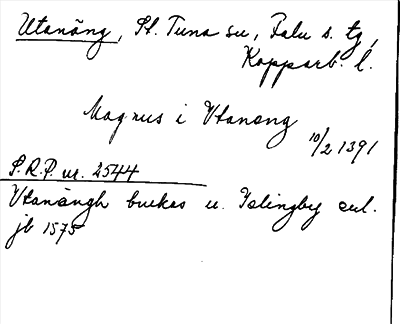 Utanäng, St. Tuna sn, Falu s. tg,
Kopparb. l.
Magnus i Vtanæng
10/2 1391
S.R.P. nr. 2544
Vtanängh brukas u. Islingby enl.
jb 1575